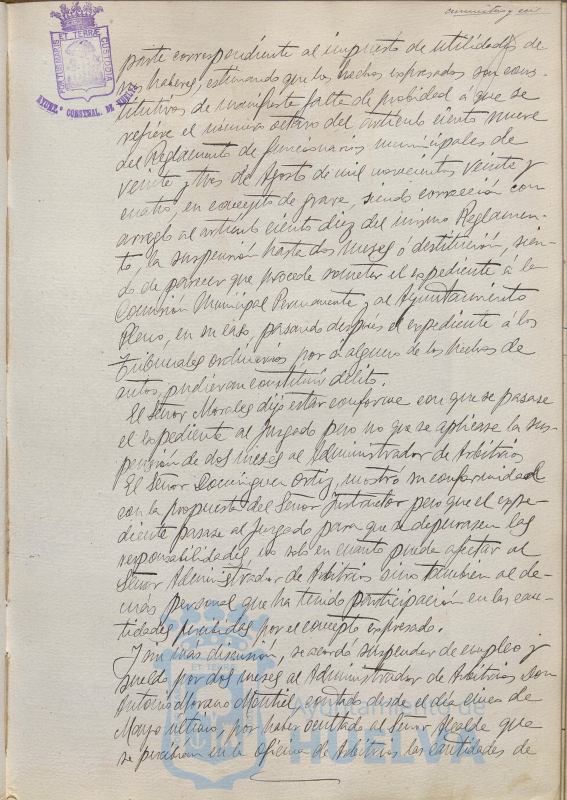 PORTUS MARIS ET TERRÆ CUSTODIA
AYUNT.º CONSTNAL. DE HUELVA
cuarenta y seis
parte correspondiente al impuesto de utilidades de
sus haberes; estimando que los hechos expresados son cons-
titutivos de manifiesta falta de probidad á que se
refiere el número octavo del artículo ciento nueve
del Reglamento de funcionarios municipales de
veinte y tres de Agosto de mil novecientos veinte y
cuatro, en concepto de grave, siendo corrección con
arreglo al artículo ciento diez del mismo Reglamen-
to, la suspensión hasta dos meses o destitución, sien-
do de parecer que procede someter el expediente á la
Comisión Municipal Permanente y al Ayuntamiento
Pleno, en su caso, pasando después el expediente á los
Tribunales ordinarios por si alguno de los hechos de
autos, pudieran constituir delito.
El Señor Morales dijo estar conforme con que se pasase
el expediente al Juzgado pero no que se aplicase la sus-
pensión de dos meses al Administrador de Arbitrios
El Señor Dominguez Ortiz, mostró su conformidad
con la propuesta del Señor Instructor pero que el expe-
diente pasase al Juzgado para que se depurasen las
responsabilidades no solo en cuanto puede afectar al
Señor Administrador de Arbitrios sino tambien al de-
más personal que ha tenido participación en las can-
tidades percibidas por el concepto expresado.
Y sin mas discusión, se acordó suspender de empleo y
sueldo por dos meses al Administrador de Arbitrios Don
Antonio Morano Montiel, contados desde el día cinco de
Marzo ultimo, por haber ocultado al Señor Alcalde que
se percibían en la oficina de Arbitrios las cantidades de
Ayuntamiento de
HUELVA